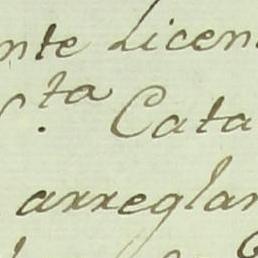 nte Licen
S.ta Cata
arreglar